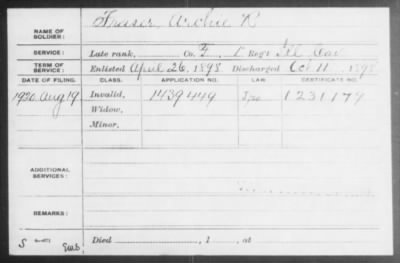 NAME OF SOLDIER: Fraser, Archie R
SERVICE: Late rank, Co. F, 1 Reg't Ill Cav
TERM OF SERVICE: Enlisted April 26, 1898 Discharged Oct 11, 1898
DATE OF FILING. CLASS. APPLICATION NO. LAW. CERTIFICATE NO.
1920 Aug 19 Invalid, 1439449 1231179
Widow,
Minor,
ADDITIONAL SERVICES:
REMARKS:
S
Died , 1 , at